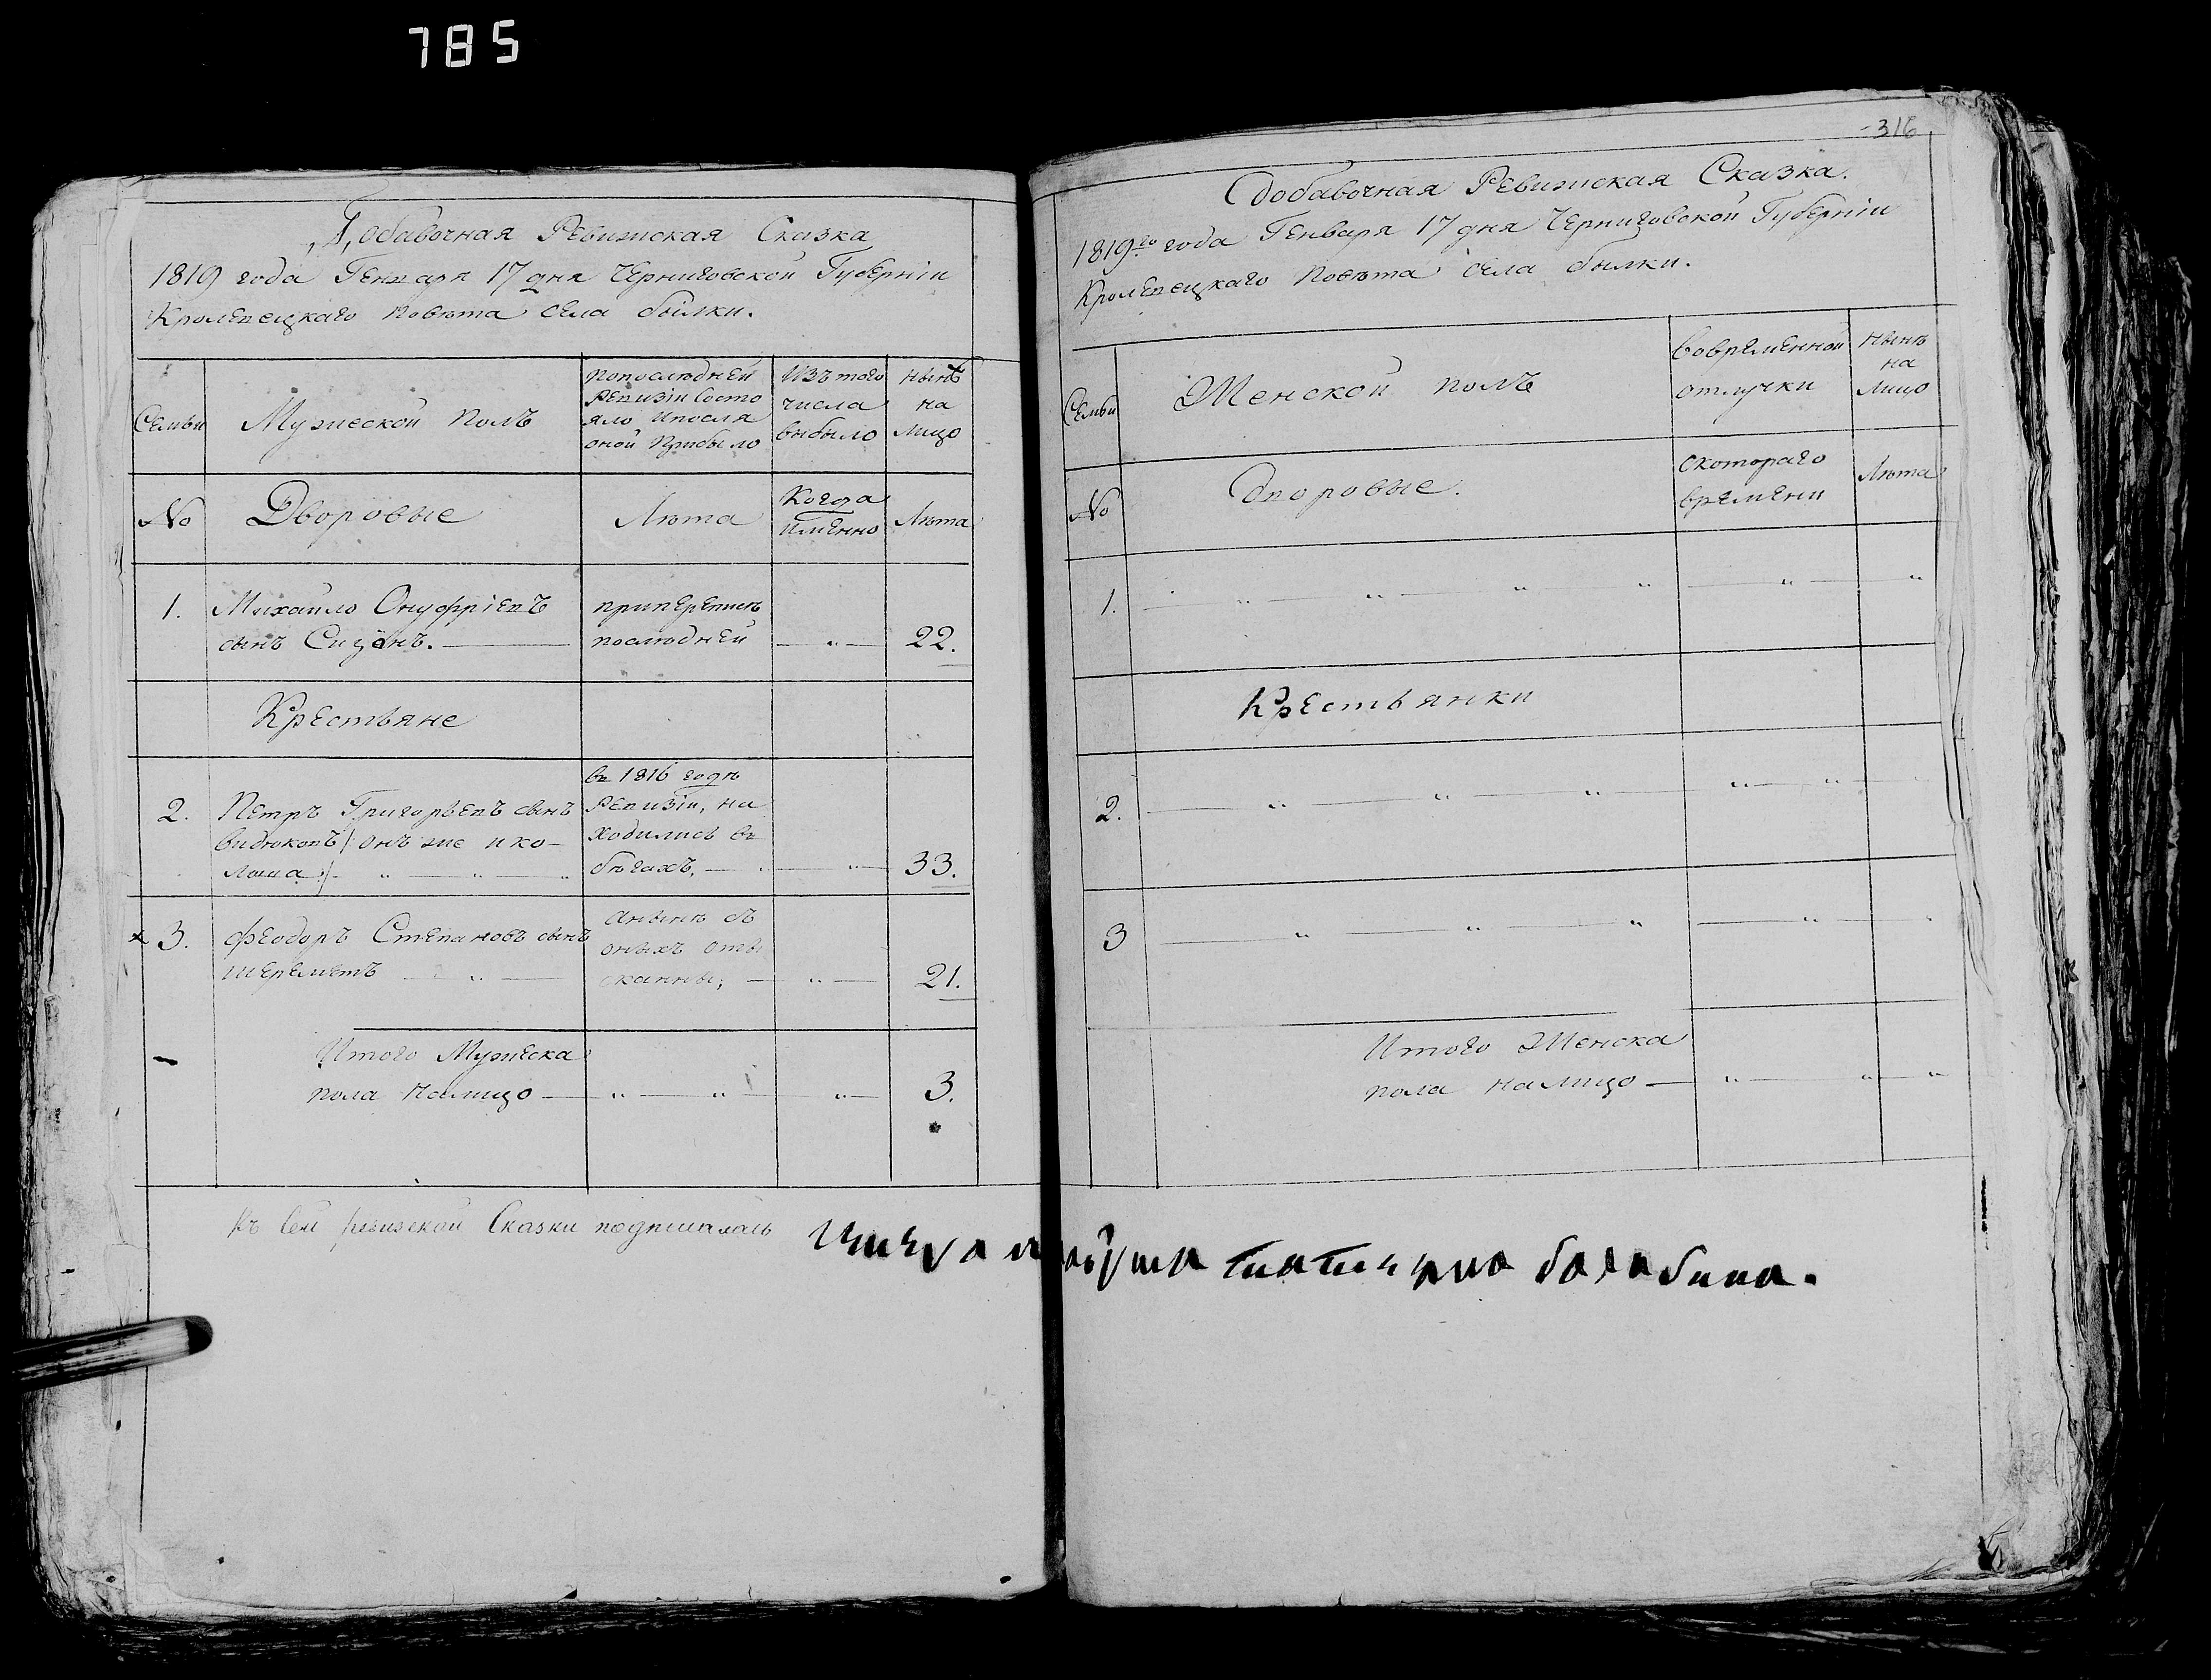 785
Добавочная Ревизская Сказка
1819 года Генваря 17 дня Черниговской Губернiи
Кролевецкаго повѣта села былки.
Семьи
Мужеской полъ
попослѣдней
Ревизiи состо
яло ипосля
оной прибыло
Изъ того
числа
выбыло
Нынѣ
на
лицо
No
Дворовые
Лѣта
Когда
имянно
Лѣта
1.
Михайло Онуфрiевъ
сынъ
приперепись
последней
22.
Крестьяне
2.
Петръ Григорьевъ сынъ
онъ же и ко-
въ 1816 годѣ
Ревизiи, на
ходились въ
бѣгахъ,
33.
3.
Феодоръ Степановъ сынъ
шереметъ
анынѣ съ
оныхъ оты
сканны;
21.
Итого Мужеска
пола налицо
3.
Къ сей ревизской Сказки подписалась
316
Добавочная Ревизская Сказка.
1819го года Генваря 17 дня Черниговской Губернiи
Кролевецкаго повѣта села былки.
Семьи
Женской полъ
вовременной
отлучки
Нынѣ
на
лицо
No
Дворовые.
скотораго
времени
Лѣта
1.
Крестьянки
2.
3
Итого Женска
пола налицо